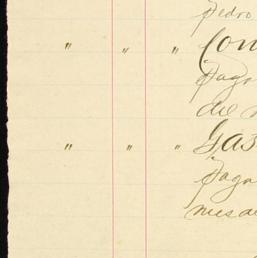 Pedro
" " " Con
Pago
de
" " " Gas
Pago
mes de